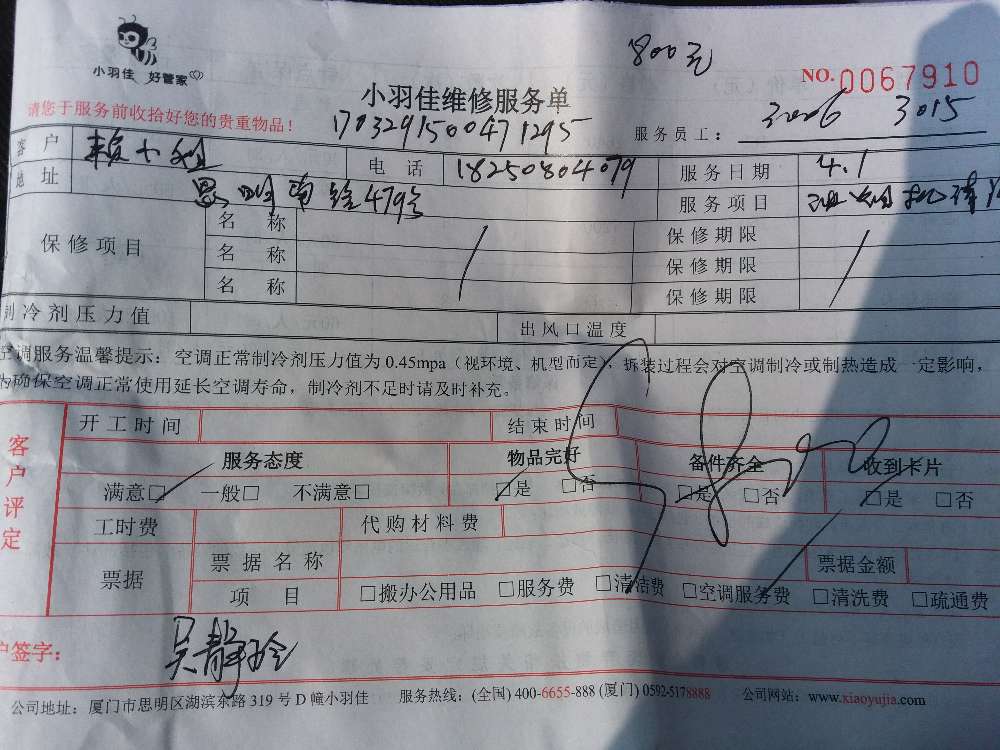 小羽佳 好管家
800元
NO.0067910
小羽佳维修服务单
请您于服务前收拾好您的贵重物品！
170329150047 1295
服务员工： 3006 3015
客户 赖小姐 电话 18250804079 服务日期 4.1
地址 思明南路479号 服务项目
保修项目 名称 保修期限
名称 保修期限
名称 保修期限
制冷剂压力值 出风口温度
空调服务温馨提示：空调正常制冷剂压力值为 0.45mpa（视环境、机型而定），拆装过程会对空调制冷或制热造成一定影响，
为确保空调正常使用延长空调寿命，制冷剂不足时请及时补充。
客户评定
开工时间 结束时间
服务态度 物品完好 备件齐全 收到卡片
满意□ 一般□ 不满意□ □是 □否 □是 □否 □是 □否
工时费 代购材料费
票据 票据名称 票据金额
项目 □搬办公用品 □服务费 □清洁费 □空调服务费 □清洗费 □疏通费
户签字： 吴静玲
公司地址：厦门市思明区湖滨东路 319 号 D 幢小羽佳 服务热线：(全国) 400-6655-888 (厦门) 0592-5178888 公司网站：www.xiaoyujia.com